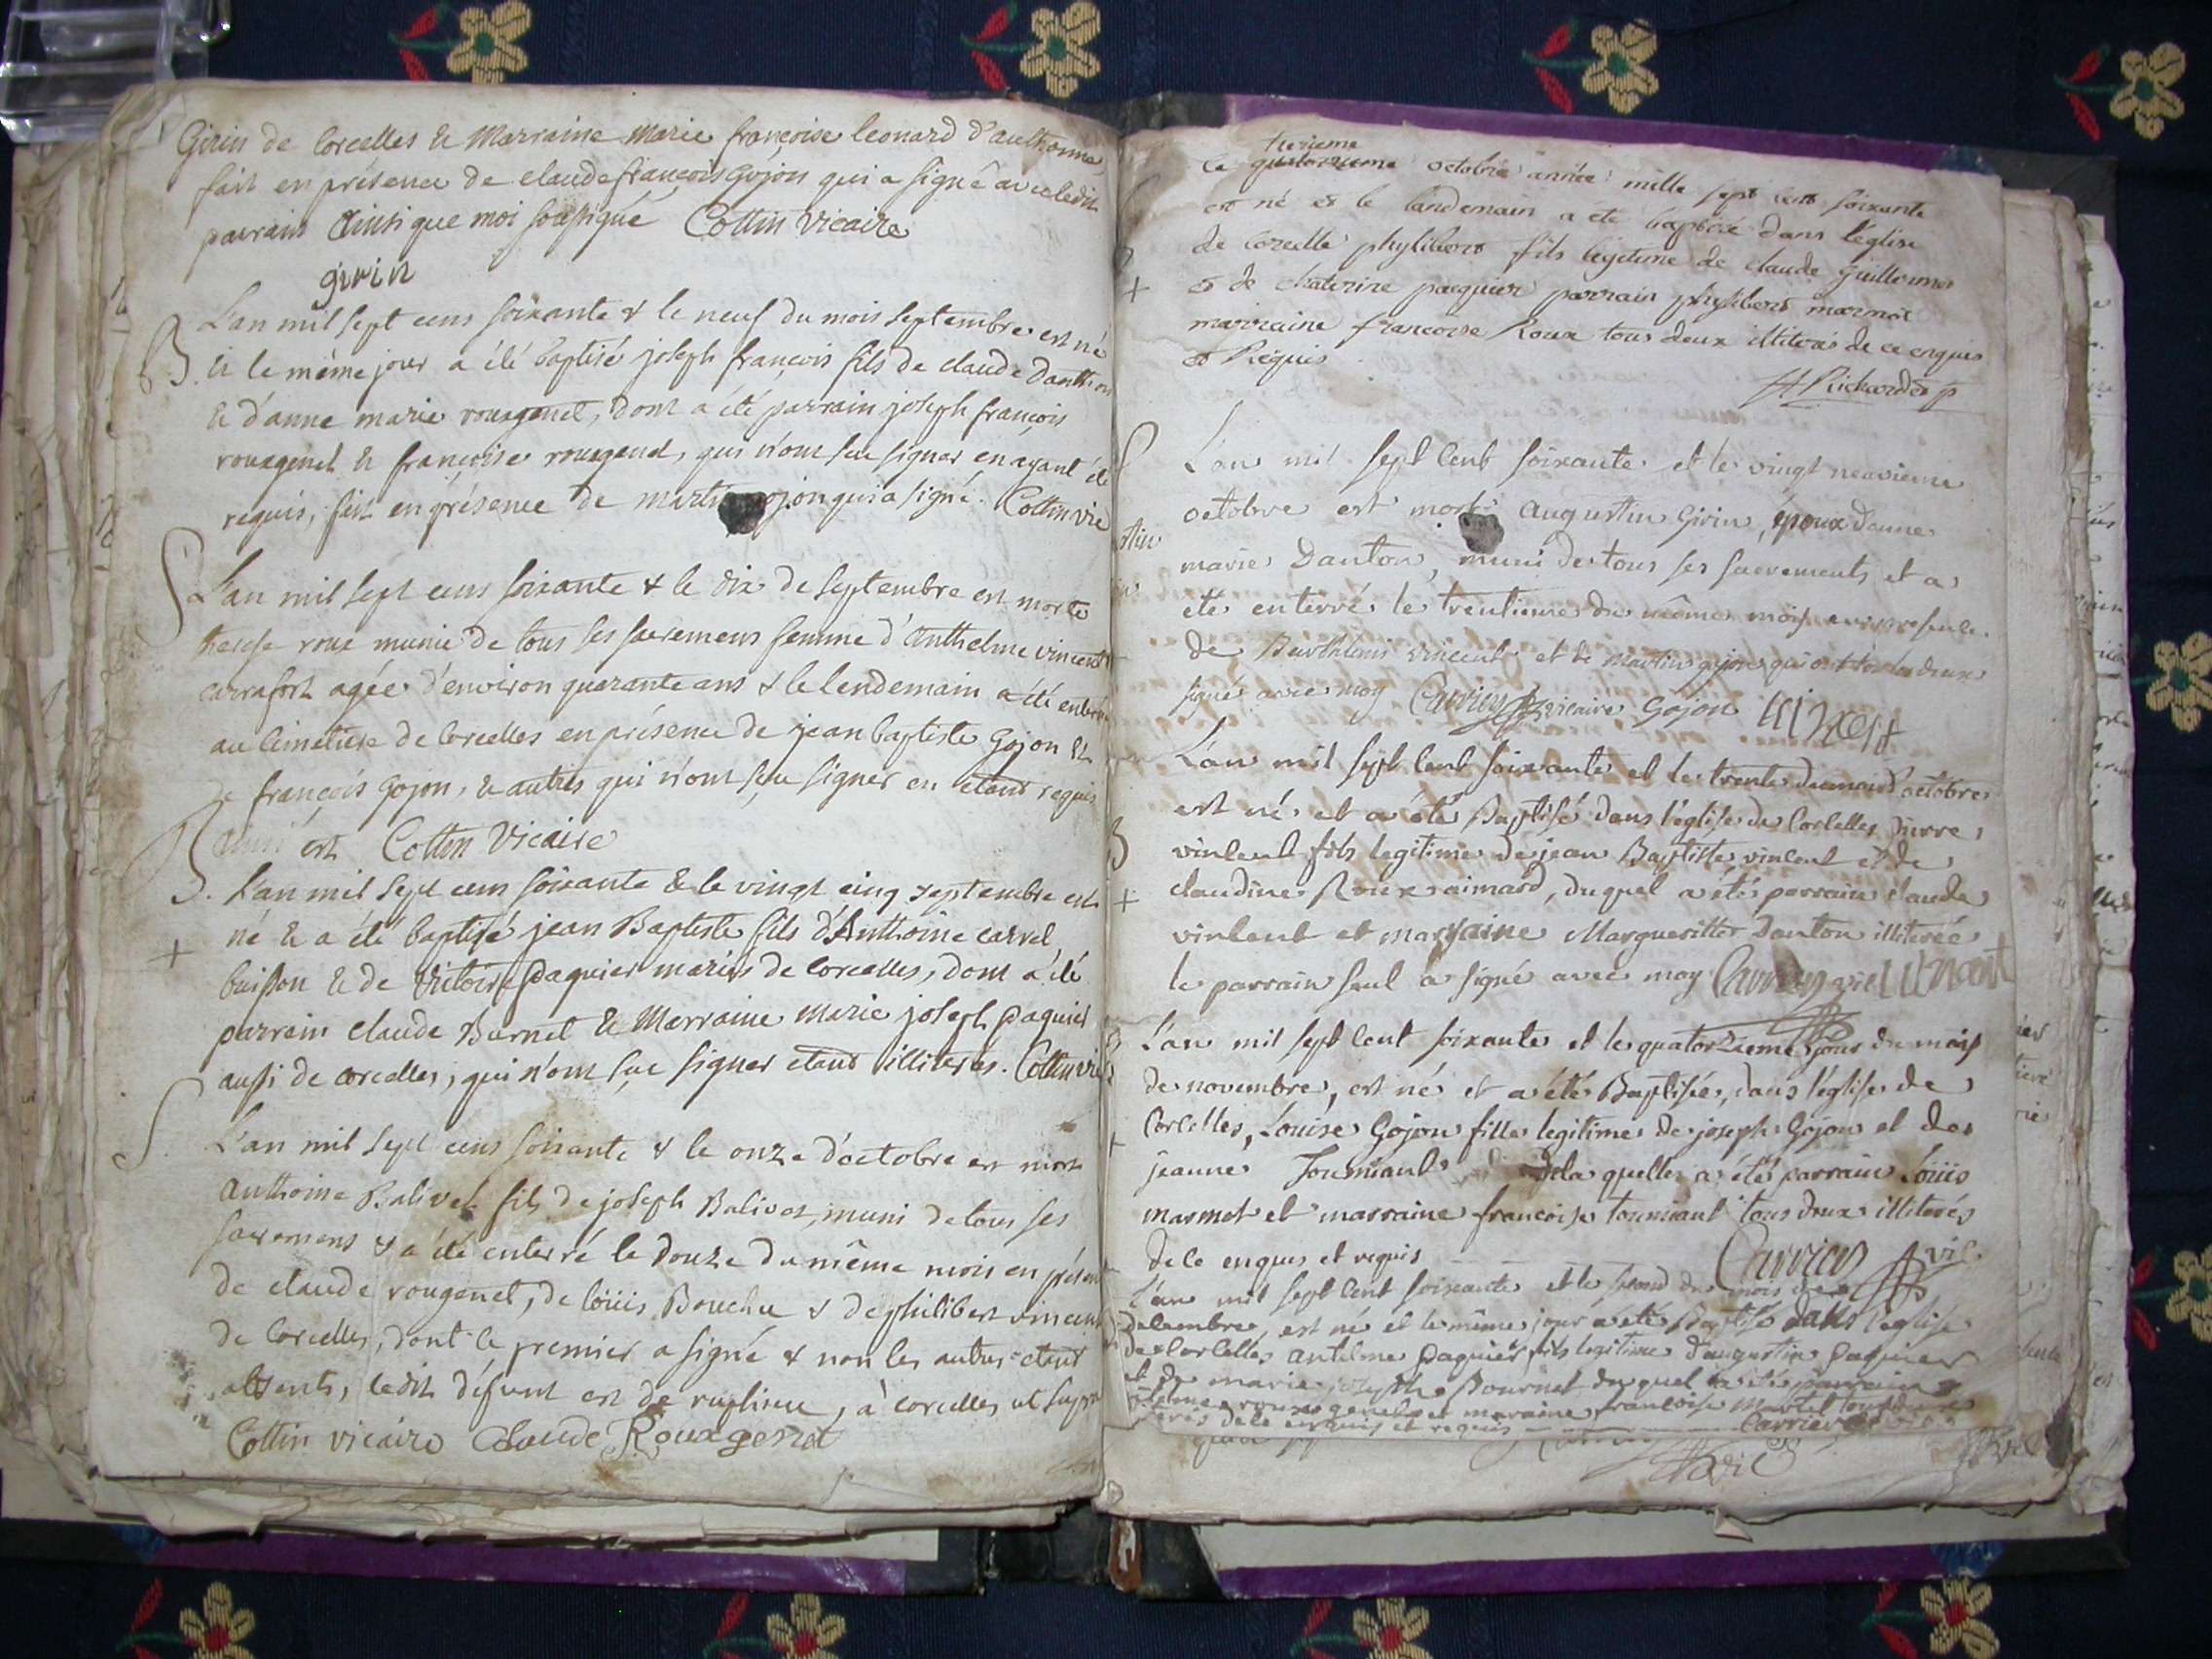 Girin de Corcelles & Marraine Marie françoise leonard d'authonne,
fait en présence de claude françois Gojon qui a signé avec ledit
parrain ainsi que moi soussigné Cottin Vicaire
girin
L'an mil sept cens soixante & le neuf du mois septembre est né
B. & le même jour a été baptisé joseph françois fils de claude Danthon
& d'anne marie rougenet, dont a été parrain joseph françois
rouxgenet & françoise rougenet, qui n'ont scu signer en ayant été
requis, fait en présence de martin gojon qui a signé. Cottin vic
S L'an mil sept cens soixante & le dix de septembre est morte
roux munie de tous ses sacremens femme d'Anthelme vincent
carrafort agée d'environ quarante ans & le lendemain a été enterrée
au cimetiere de Corcelles en présence de jean baptiste Gojon &
de françois Gojon, & autres qui n'ont scu signer en étant requis
ainsi est Cottin Vicaire
B. L'an mil sept cens soixante & le vingt cinq septembre est
+ né & a été baptisé jean Baptiste fils d'Anthoine carrel
buisson & de Victoire paquier mariés de Corcelles, dont a été
parrain claude Burnet & Marraine marie joseph paquier
aussi de corcelles, qui n'ont scu signer etant illiterés. Cottin vic
S L'an mil sept cens soixante & le onze d'octobre est mort
Anthoine Balivet fils de joseph Balivet, muni de tous ses
sacremens & a été enterré le douze du même mois en présence
de claude rougenet, de loüis Bouchu & de philibert vincent
de Corcelles, dont le premier a signé & non les autres etant
absents, ledit défunt est de ruplieu, à corcelles ut supra
Cottin vicaire Claude Rouxgenet
treizieme
Ce quatorzieme octobre année mille sept cent soixante
est né et le landemain a eté baptisé dans l'église
de corcelle phylibert fils légitime de claude guillermet
+ et de chaterine paequier parrain phylibert marmet
marraine francoise Roux tous deux illiterés de ce enquis
et Requis
Richardet p
S L'an mil sept cent soixante et le vingt neuvieme
octobre est mort augustin Girin, époux danne
marie Danton, muni de tous ses sacrements et a
été enterré le trentieme du même mois en presence
de Barthlemis vincent et de martin gojon qui ont tous deux
signé avec moy Carrier vicaire Gojon
L'an mil sept cent soixante et le trente du mois d'octobre
est né et a été Baptisé dans l'église de Corcelles pierre
B vincent fils legitime de jean Baptiste vincent et de
+ claudine Roux aimard, duquel a été parrain claude
vincent et marraine Margueritte Danton illiterée
le parrain seul a signé avec moy Carrier vic
B L'an mil sept cent soixante et le quatorzieme jour du mois
de novembre, est né et a été Baptisée, dans l'église de
+ Corcelles, Louise Gojon fille legitime de joseph Gojon et de
jeanne Toumiant de la quelle a été parrain Loüis
marmet et marraine francoise toumiant tous deux illiterés
de ce enquis et requis Carrier vic
L'an mil sept cent soixante et le second du mois de
decembre, est né et le même jour a été Baptisé dans l'église
de Corcelles antelme paquier fils legitime d'augustin paquier
et de marie josephe Bournet duquel a été parrain
antelme rouxgenet et maraine francoise Martel tous deux
de ce enquis et requis Carrier